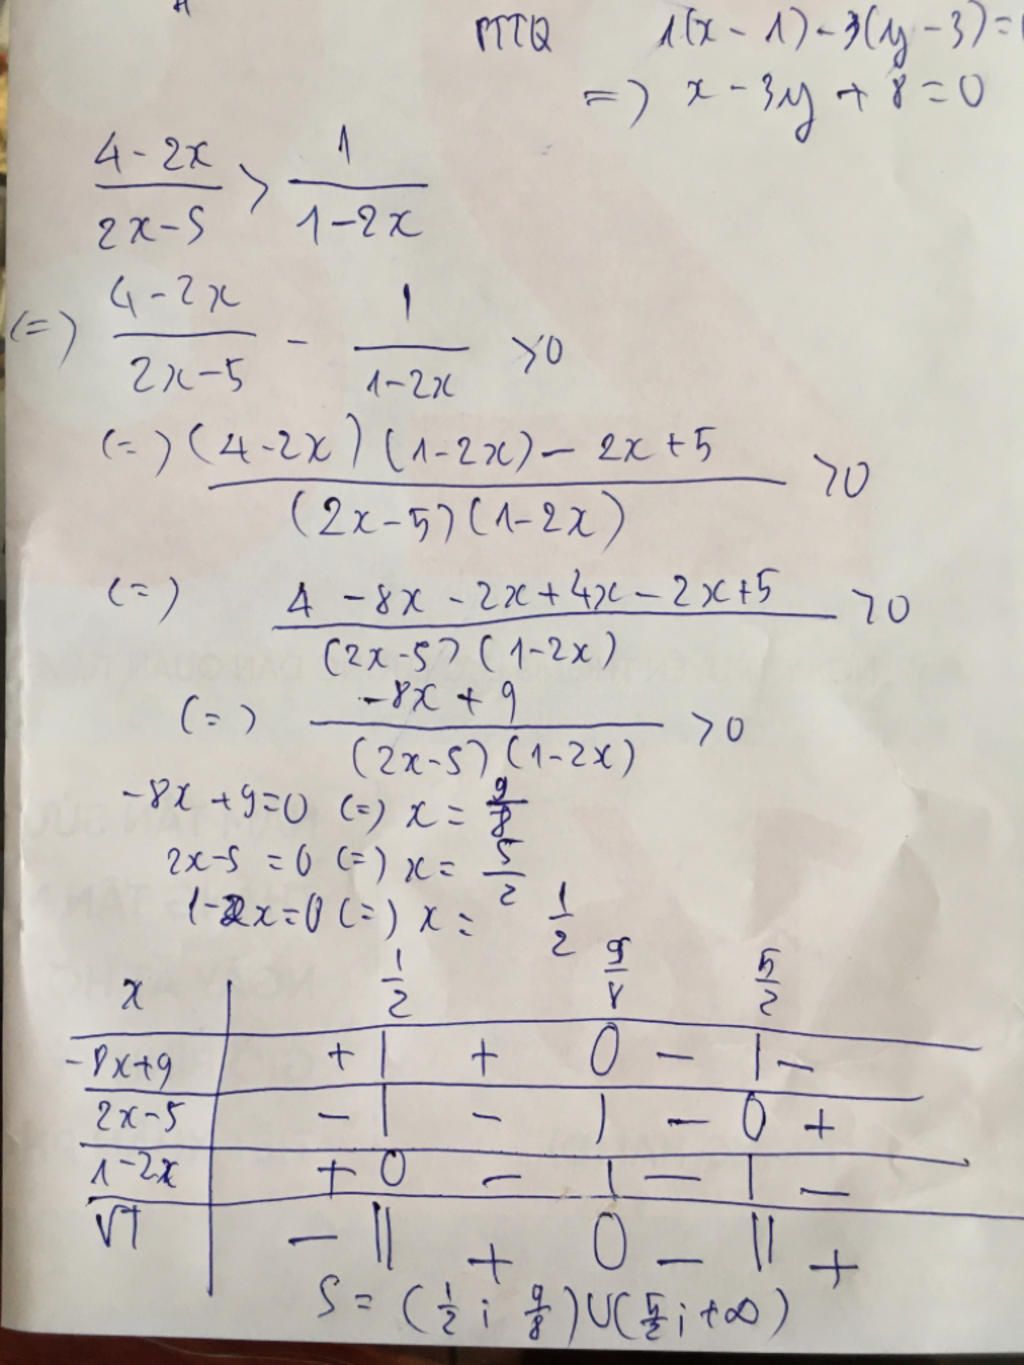 PTTQ 1(x - 1) - 3(y - 3) =
=> x - 3y + 8 = 0
(4 - 2x)/(2x - 5) > 1/(1 - 2x)
(=) (4 - 2x)/(2x - 5) - 1/(1 - 2x) > 0
(=) ((4 - 2x)(1 - 2x) - 2x + 5)/((2x - 5)(1 - 2x)) > 0
(=) (4 - 8x - 2x + 4x - 2x + 5)/((2x - 5)(1 - 2x)) > 0
(=) (-8x + 9)/((2x - 5)(1 - 2x)) > 0
-8x + 9 = 0 (=) x = 9/8
2x - 5 = 0 (=) x = 5/2
1 - 2x = 0 (=) x = 1/2
x | 1/2 9/8 5/2
-8x + 9 | + | + 0 - | -
2x - 5 | - | - | - 0 +
1 - 2x | + 0 - | - | -
VT | - || + 0 - || +
S = (1/2 ; 9/8) ∪ (5/2 ; +∞)